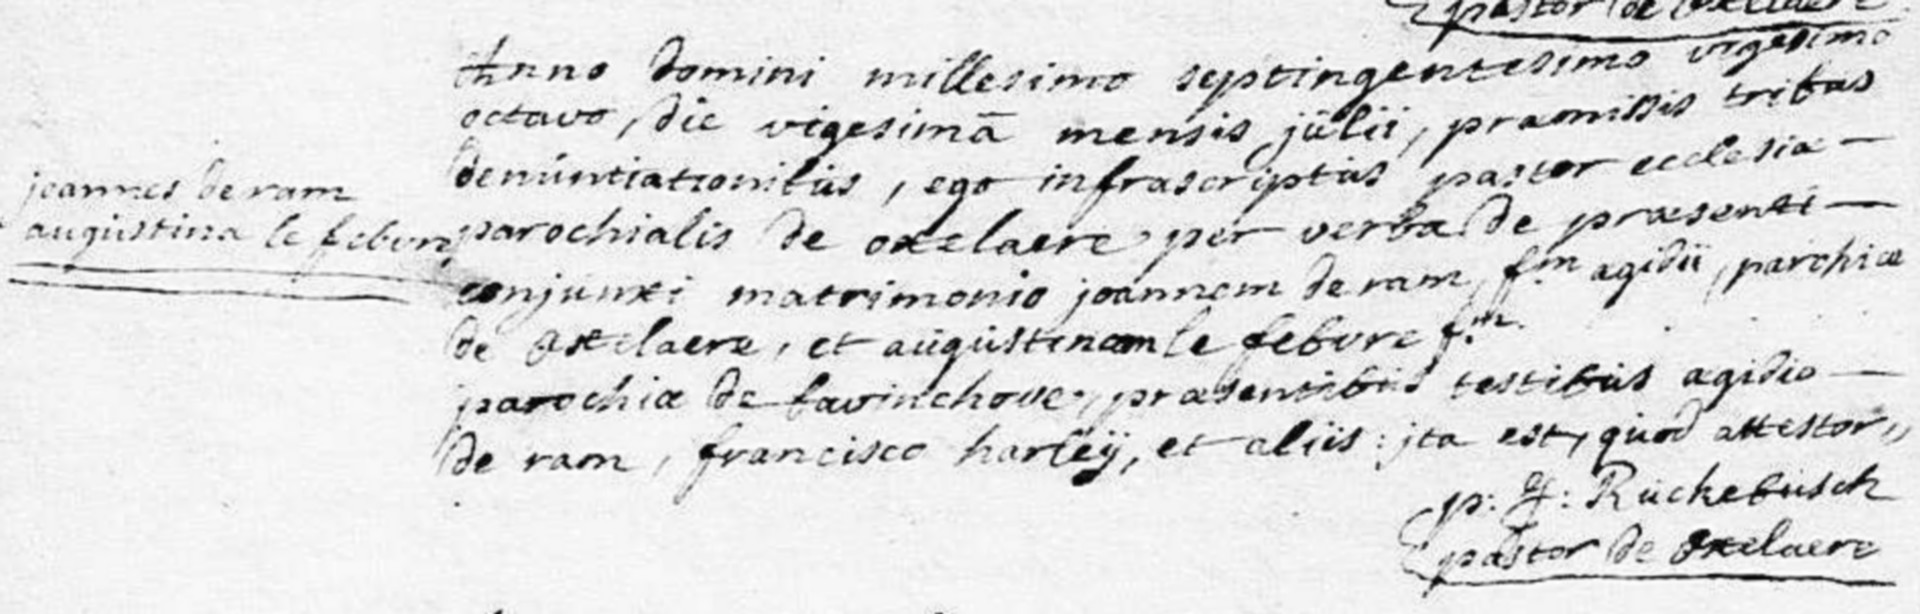 pastor de oxelaere
Anno domini millesimo septingentesimo vigesimo
octavo, die vigesimā mensis jülii, præmissis tribus
denüntiationibüs, ego infrascriptüs pastor ecclesiæ —
joannes de ram
augüstina le febvre
parochialis de oxelaere per verba de præsenti —
conjunxi matrimonio joannem de ram, f.m ægidii, parchiæ
de oxelaere, et augüstinam le febvre f.m
parochiæ de bavinchove, præsentibüs testibüs ægidio —
de ram, francisco harleÿ, et aliis: jta est, qüod attestor,,
p: J: Rückebüsch
pastor de oxelaere